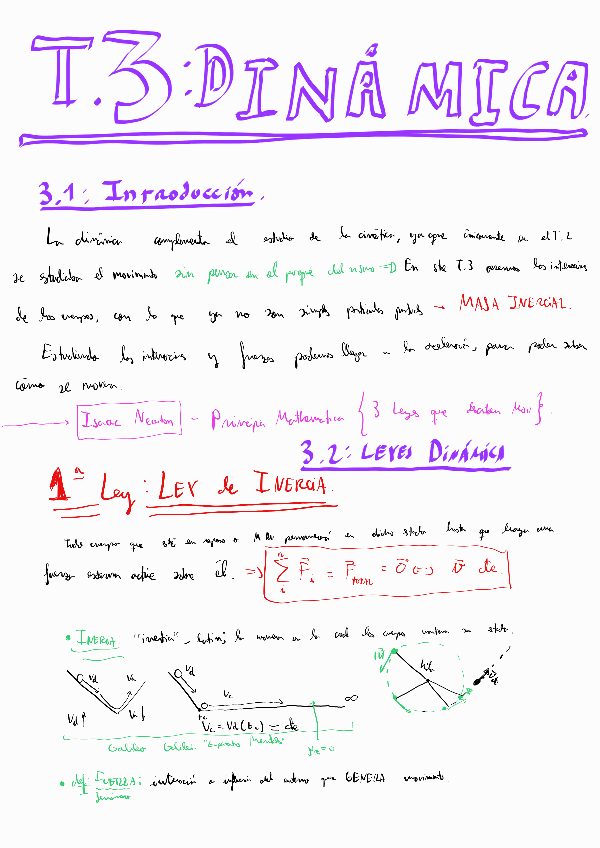 T.3: DINÁMICA
3.1: Introducción.
La dinámica complementa el estudio de la cinética, ya que únicamente en el T.2
se estudiaba el movimiento sin pensar en el porqué del mismo =D En este T.3 veremos las interacciones
de los cuerpos, con lo que ya no son simples partículas puntuales → MASA INERCIAL.
Estudiando las interacciones y fuerzas podemos llegar a la aceleración, para poder saber
cómo se mueven.
→ Isaac Newton - Principia Mathematica { 3 Leyes que describen Mov }.
3.2: LEYES DINÁMICA
1ª Ley: LEY de INERCIA.
Todo cuerpo que esté en reposo o MRU permanecerá en dicho estado hasta que haya una
fuerza externa actúe sobre él. => Σ F⃗i = F⃗total = 0⃗ <=> v⃗ cte
• INERCIA "inertia", la manera en la cual los cuerpos mantienen su estado.
Vd Vc Vd Vc ∞
Vd ↑ Vc ↓ Vc = Vd (tc) = cte
Galileo Galilei
• def: FUERZA: interacción o influencia del entorno que GENERA movimiento.